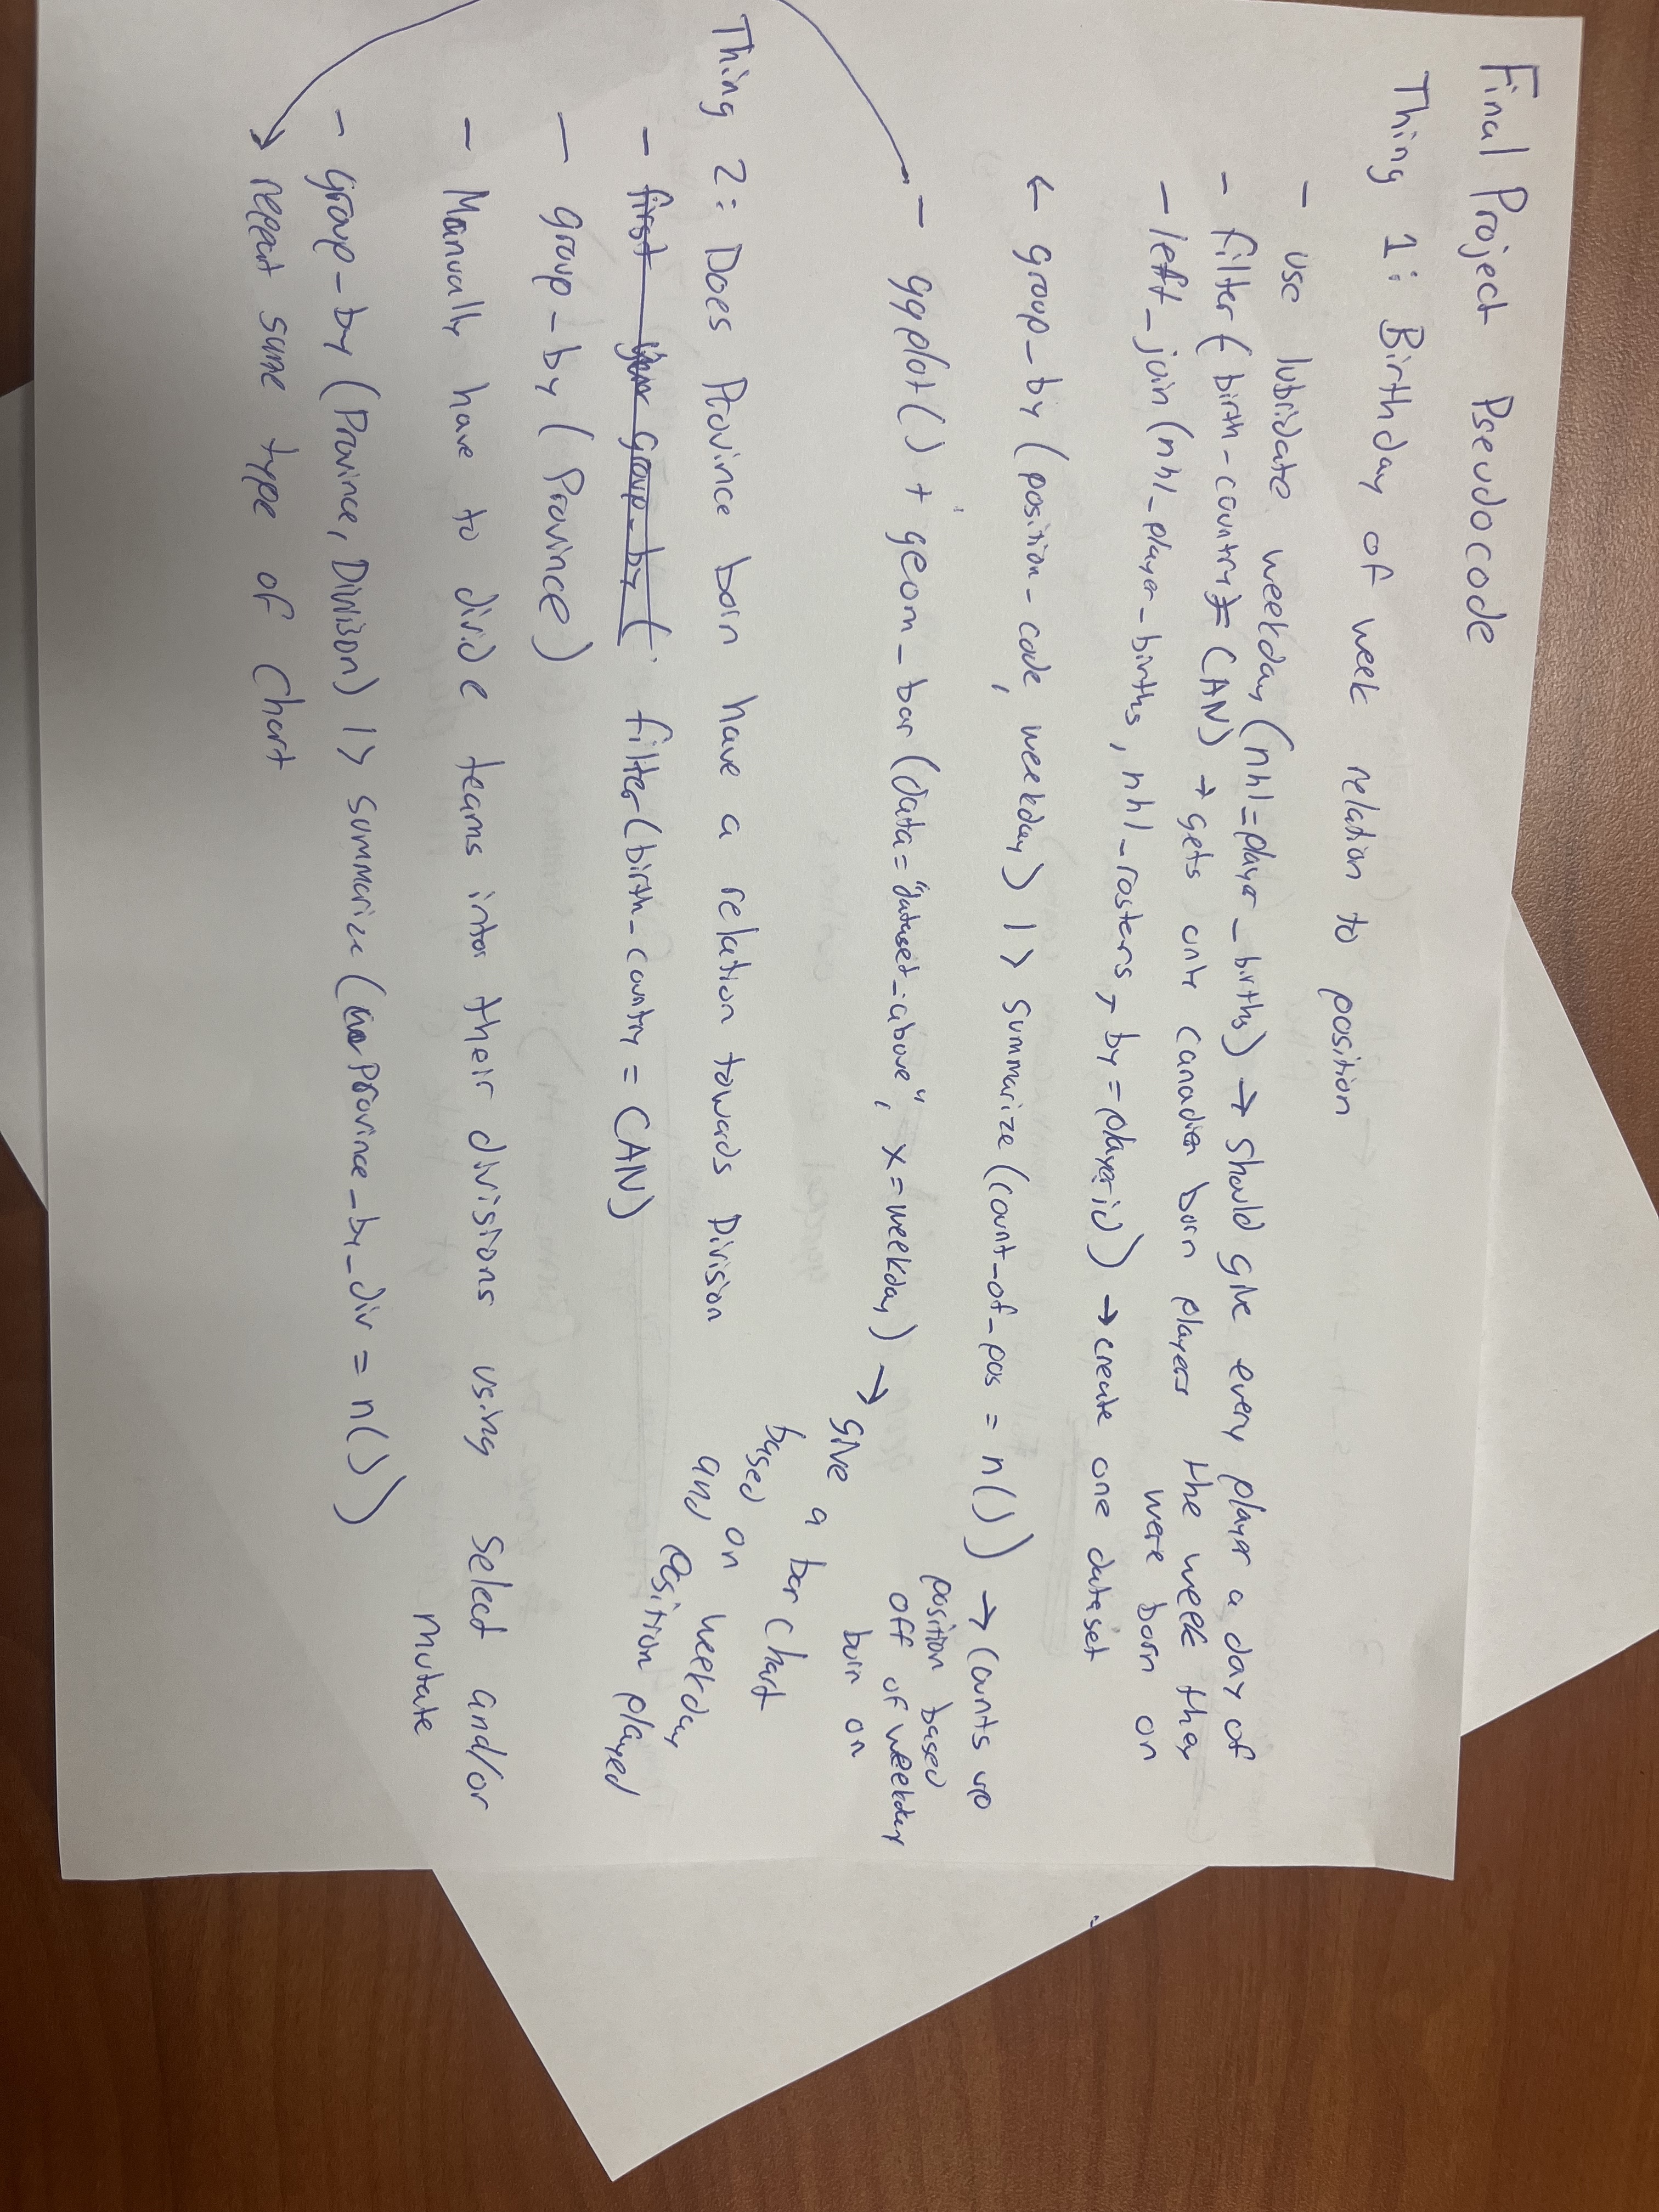 Final Project Pseudocode
Thing 1: Birthday of week relation to position
- use lubridate weekday (nhl_player_births) → should give every player a day of the week they were born on
- filter(birth_country = CAN) → gets only canadien born players
- left_join(nhl_player_births, nhl_rosters, by = playerid) → create one dataset
← group_by (position_code, weekday) |> summarize (count_of_pos = n()) → counts up
position based
off of weekday
born on
- ggplot() + geom_bar (data = "dataset_above", x = weekday) → give a bar chart
based on weekday
and position played
Thing 2: Does Province born have a relation towards Division
- first group_by ( filter(birth_country = CAN)
- group_by (Province)
- Manually have to divide teams into their divisions using select and/or
mutate
- group_by (Province, Division) |> summarize (Province_by_div = n())
→ repeat same type of chart